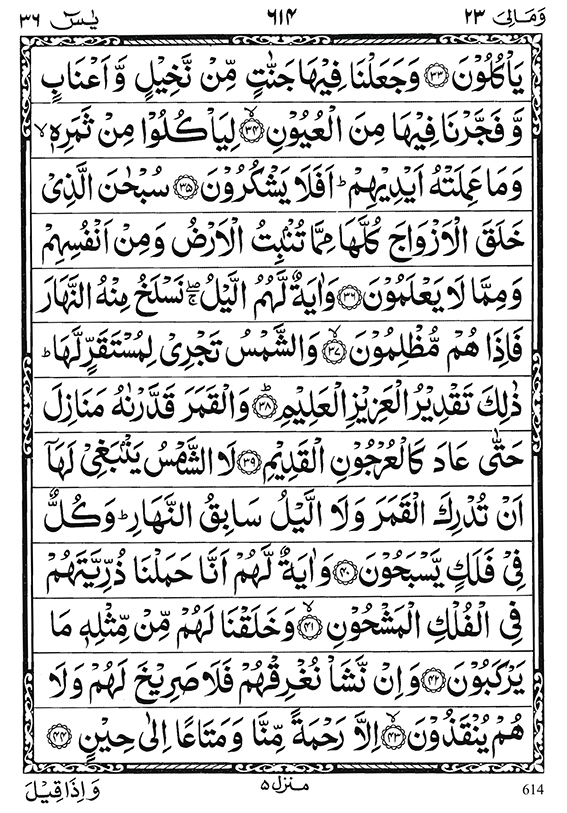 وَمَالِىَ ٢٣ ٦١٤ يٰسٓ ٣٦
يَاْكُلُوْنَ ﴿٣٣﴾ وَجَعَلْنَا فِيْهَا جَنّٰتٍ مِّنْ نَّخِيْلٍ وَّاَعْنَابٍ
وَّفَجَّرْنَا فِيْهَا مِنَ الْعُيُوْنِ ﴿٣٤﴾ۙ لِيَاْكُلُوْا مِنْ ثَمَرِهٖۙ
وَمَا عَمِلَتْهُ اَيْدِيْهِمْ ؕ اَفَلَا يَشْكُرُوْنَ ﴿٣٥﴾ سُبْحٰنَ الَّذِىْ
خَلَقَ الْاَزْوَاجَ كُلَّهَا مِمَّا تُنْۢبِتُ الْاَرْضُ وَمِنْ اَنْفُسِهِمْ
وَمِمَّا لَا يَعْلَمُوْنَ ﴿٣٦﴾ وَاٰيَةٌ لَّهُمُ الَّيْلُ ۖۚ نَسْلَخُ مِنْهُ النَّهَارَ
فَاِذَا هُمْ مُّظْلِمُوْنَ ﴿٣٧﴾ۙ وَالشَّمْسُ تَجْرِىْ لِمُسْتَقَرٍّ لَّهَا ؕ
ذٰلِكَ تَقْدِيْرُ الْعَزِيْزِ الْعَلِيْمِ ﴿٣٨﴾ؕ وَالْقَمَرَ قَدَّرْنٰهُ مَنَازِلَ
حَتّٰى عَادَ كَالْعُرْجُوْنِ الْقَدِيْمِ ﴿٣٩﴾ لَا الشَّمْسُ يَنْۢبَغِىْ لَهَاۤ
اَنْ تُدْرِكَ الْقَمَرَ وَلَا الَّيْلُ سَابِقُ النَّهَارِ ؕ وَكُلٌّ
فِىْ فَلَكٍ يَّسْبَحُوْنَ ﴿٤٠﴾ وَاٰيَةٌ لَّهُمْ اَنَّا حَمَلْنَا ذُرِّيَّتَهُمْ
فِى الْفُلْكِ الْمَشْحُوْنِ ﴿٤١﴾ۙ وَخَلَقْنَا لَهُمْ مِّنْ مِّثْلِهٖ مَا
يَرْكَبُوْنَ ﴿٤٢﴾ وَاِنْ نَّشَاْ نُغْرِقْهُمْ فَلَا صَرِيْخَ لَهُمْ وَلَا
هُمْ يُنْقَذُوْنَ ﴿٤٣﴾ۙ اِلَّا رَحْمَةً مِّنَّا وَمَتَاعًا اِلٰى حِيْنٍ ﴿٤٤﴾
وَاِذَا قِيْلَ منزل ٥ 614